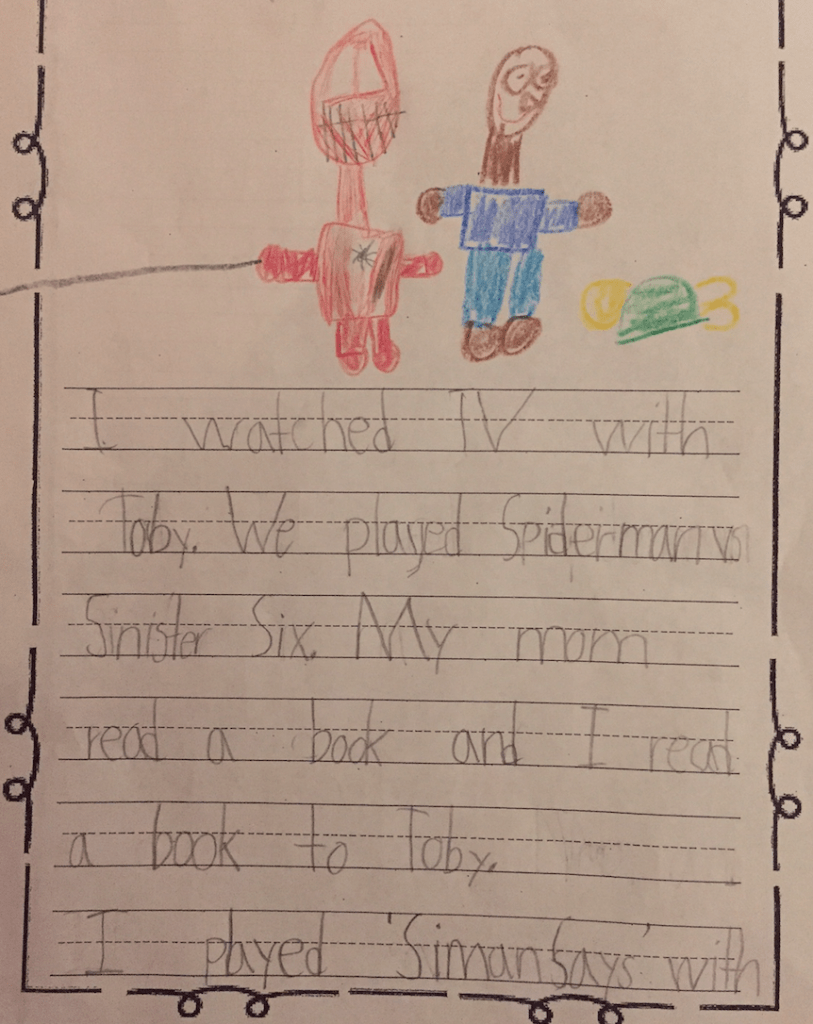 I watched TV with
Toby. We played Spiderman vs
Sinister Six. My mom
read a book and I read
a book to Toby.
I played 'Simun Says' with